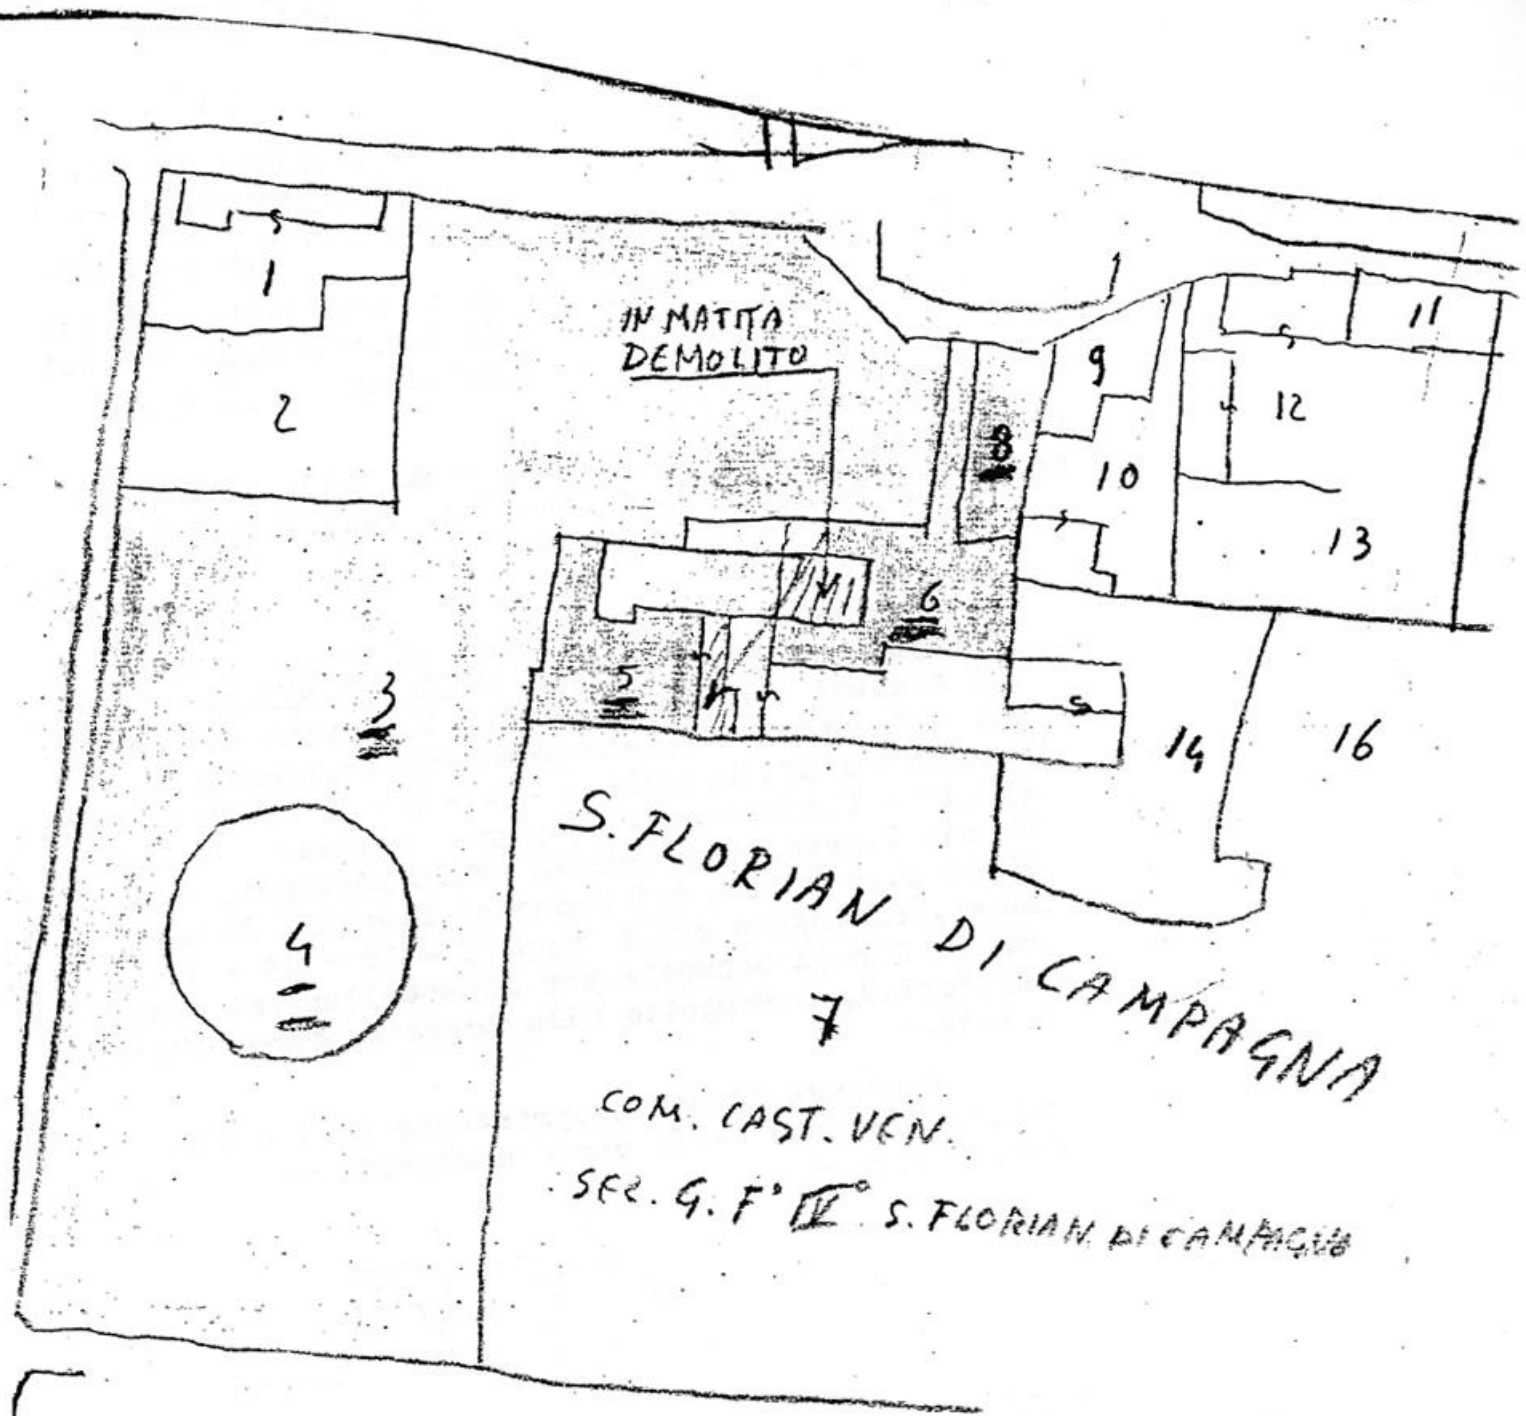 1
2
IN MATITA
DEMOLITO
8
9
10
11
12
13
6
5
3
14
16
4
S. FLORIAN DI CAMPAGNA
7
COM. CAST. VEN.
SEZ. G. F° IV° S. FLORIAN DI CAMPAGNA